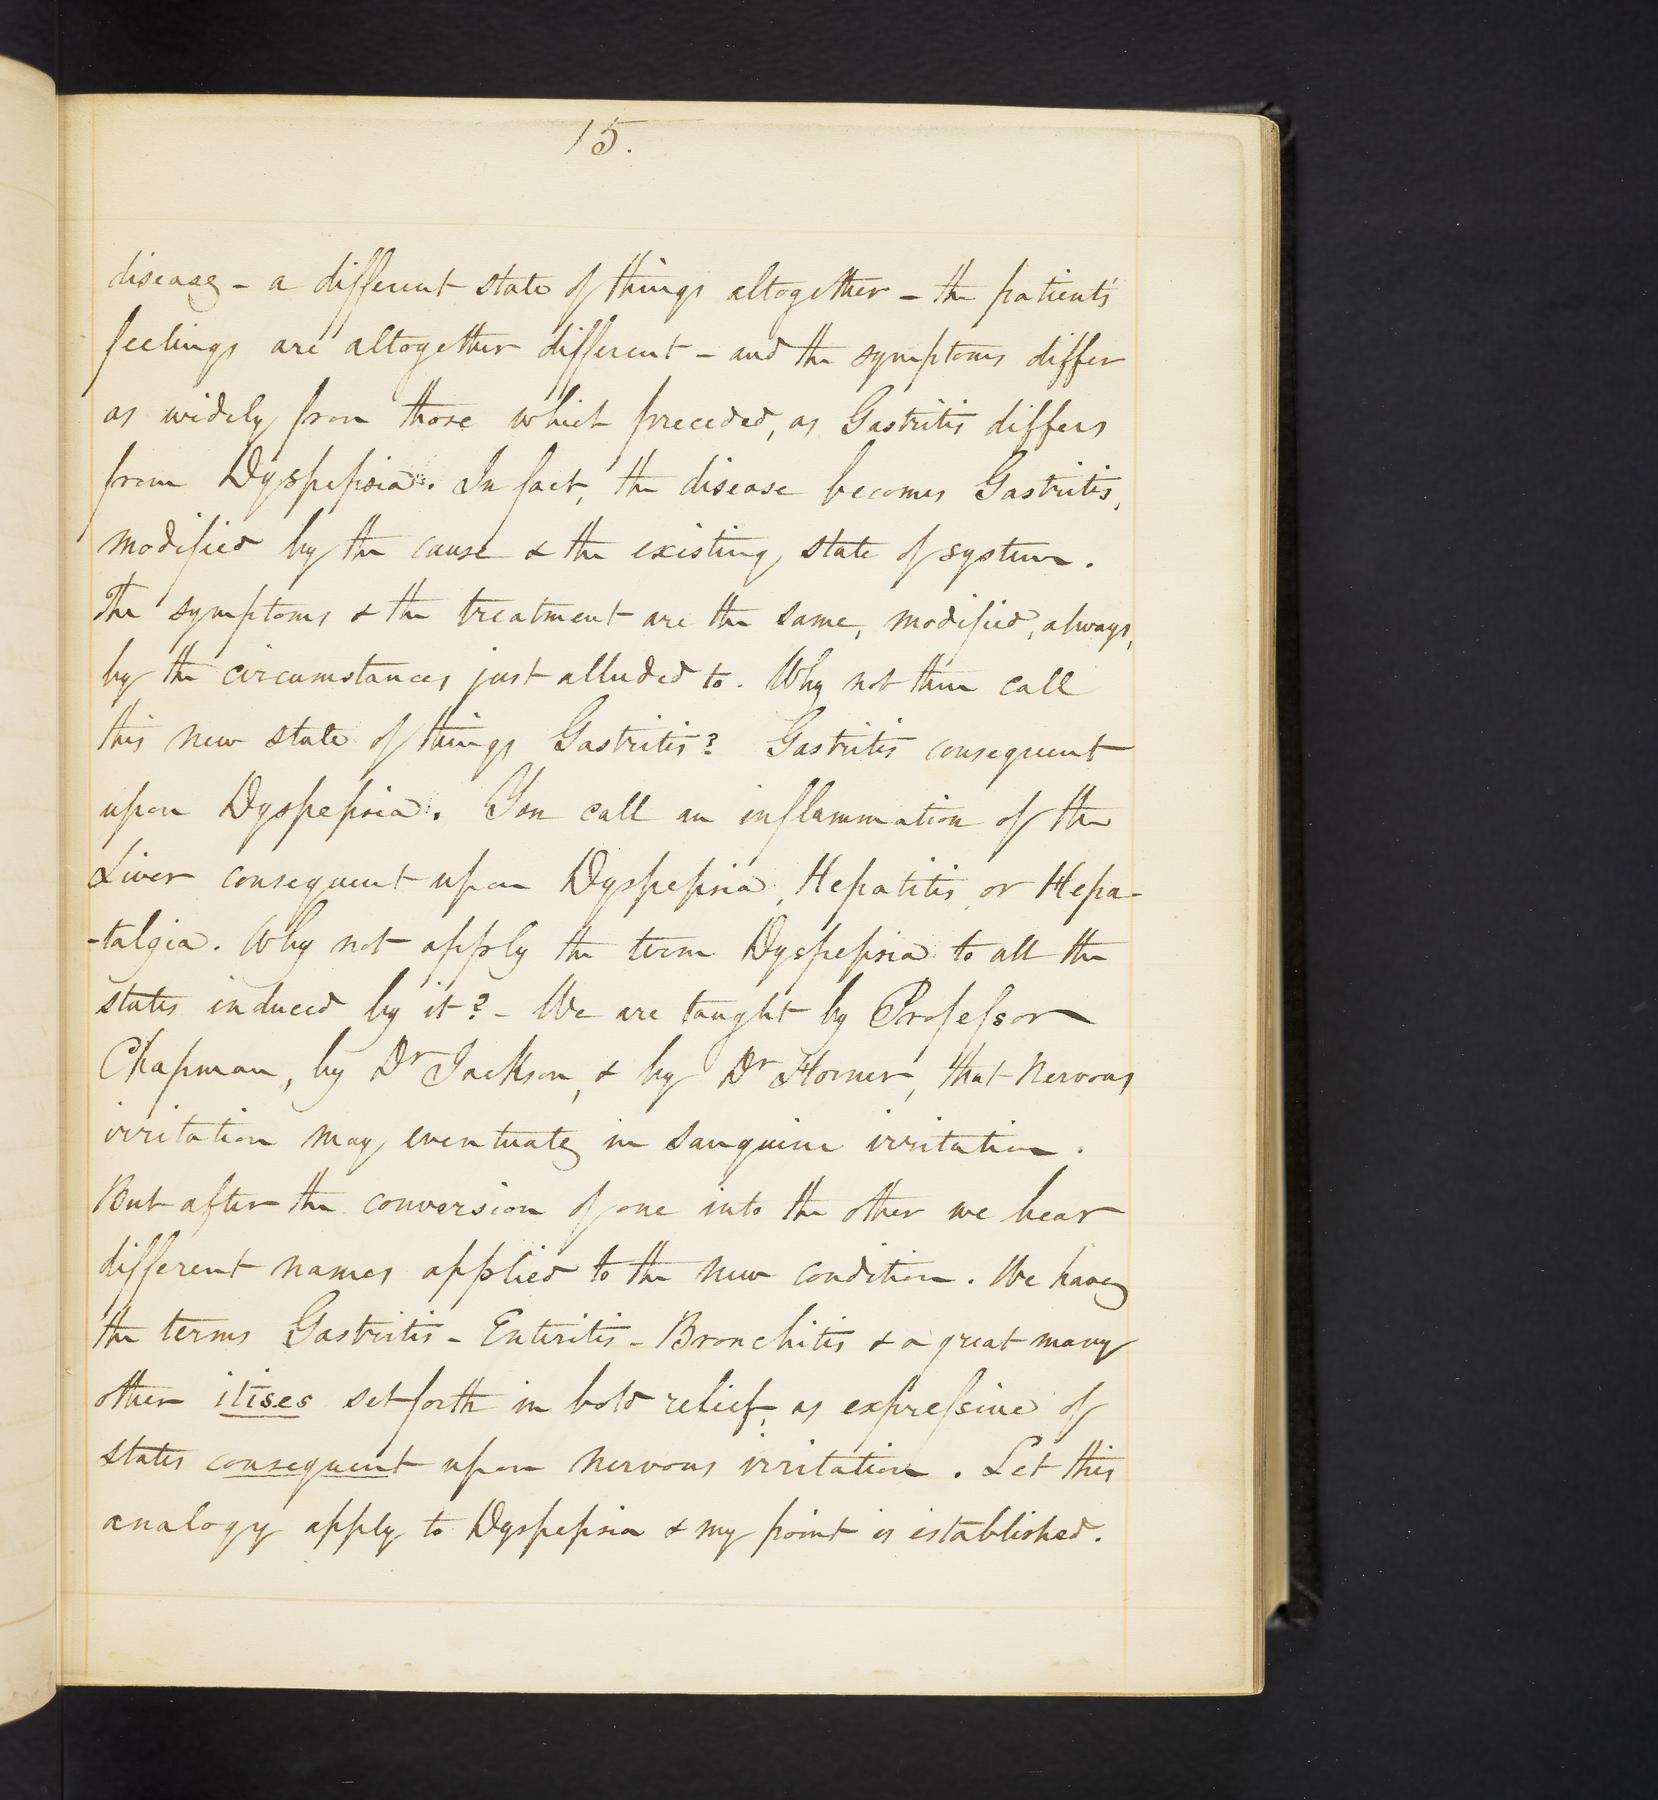 15.
disease - a different state of things altogether - the patient's
feelings are altogether different - and the symptoms differ
as widely from those which preceded, as Gastritis differs
from Dyspepsia. In fact, the disease becomes Gastritis,
modified by the cause & the existing state of system.
The symptoms & the treatment are the same, modified, always,
by the circumstances just alluded to. Why not then call
this new state of things Gastritis? Gastritis consequent
upon Dyspepsia. You call an inflammation of the
Liver consequent upon Dyspepsia, Hepatitis, or Hepa-
-talgia. Why not apply the term Dyspepsia to all the
states induced by it? - We are taught by Professor
Chapman, by Dr Jackson, & by Dr Horner, that nervous
irritation may eventuate in sanguine irritation.
But after the conversion of one into the other we hear
different names applied to the new condition. We have
the terms Gastritis - Enteritis - Bronchitis & a great many
other itises set forth in bold relief, as expressive of
states consequent upon nervous irritation. Let this
analogy apply to Dyspepsia & my point is established.